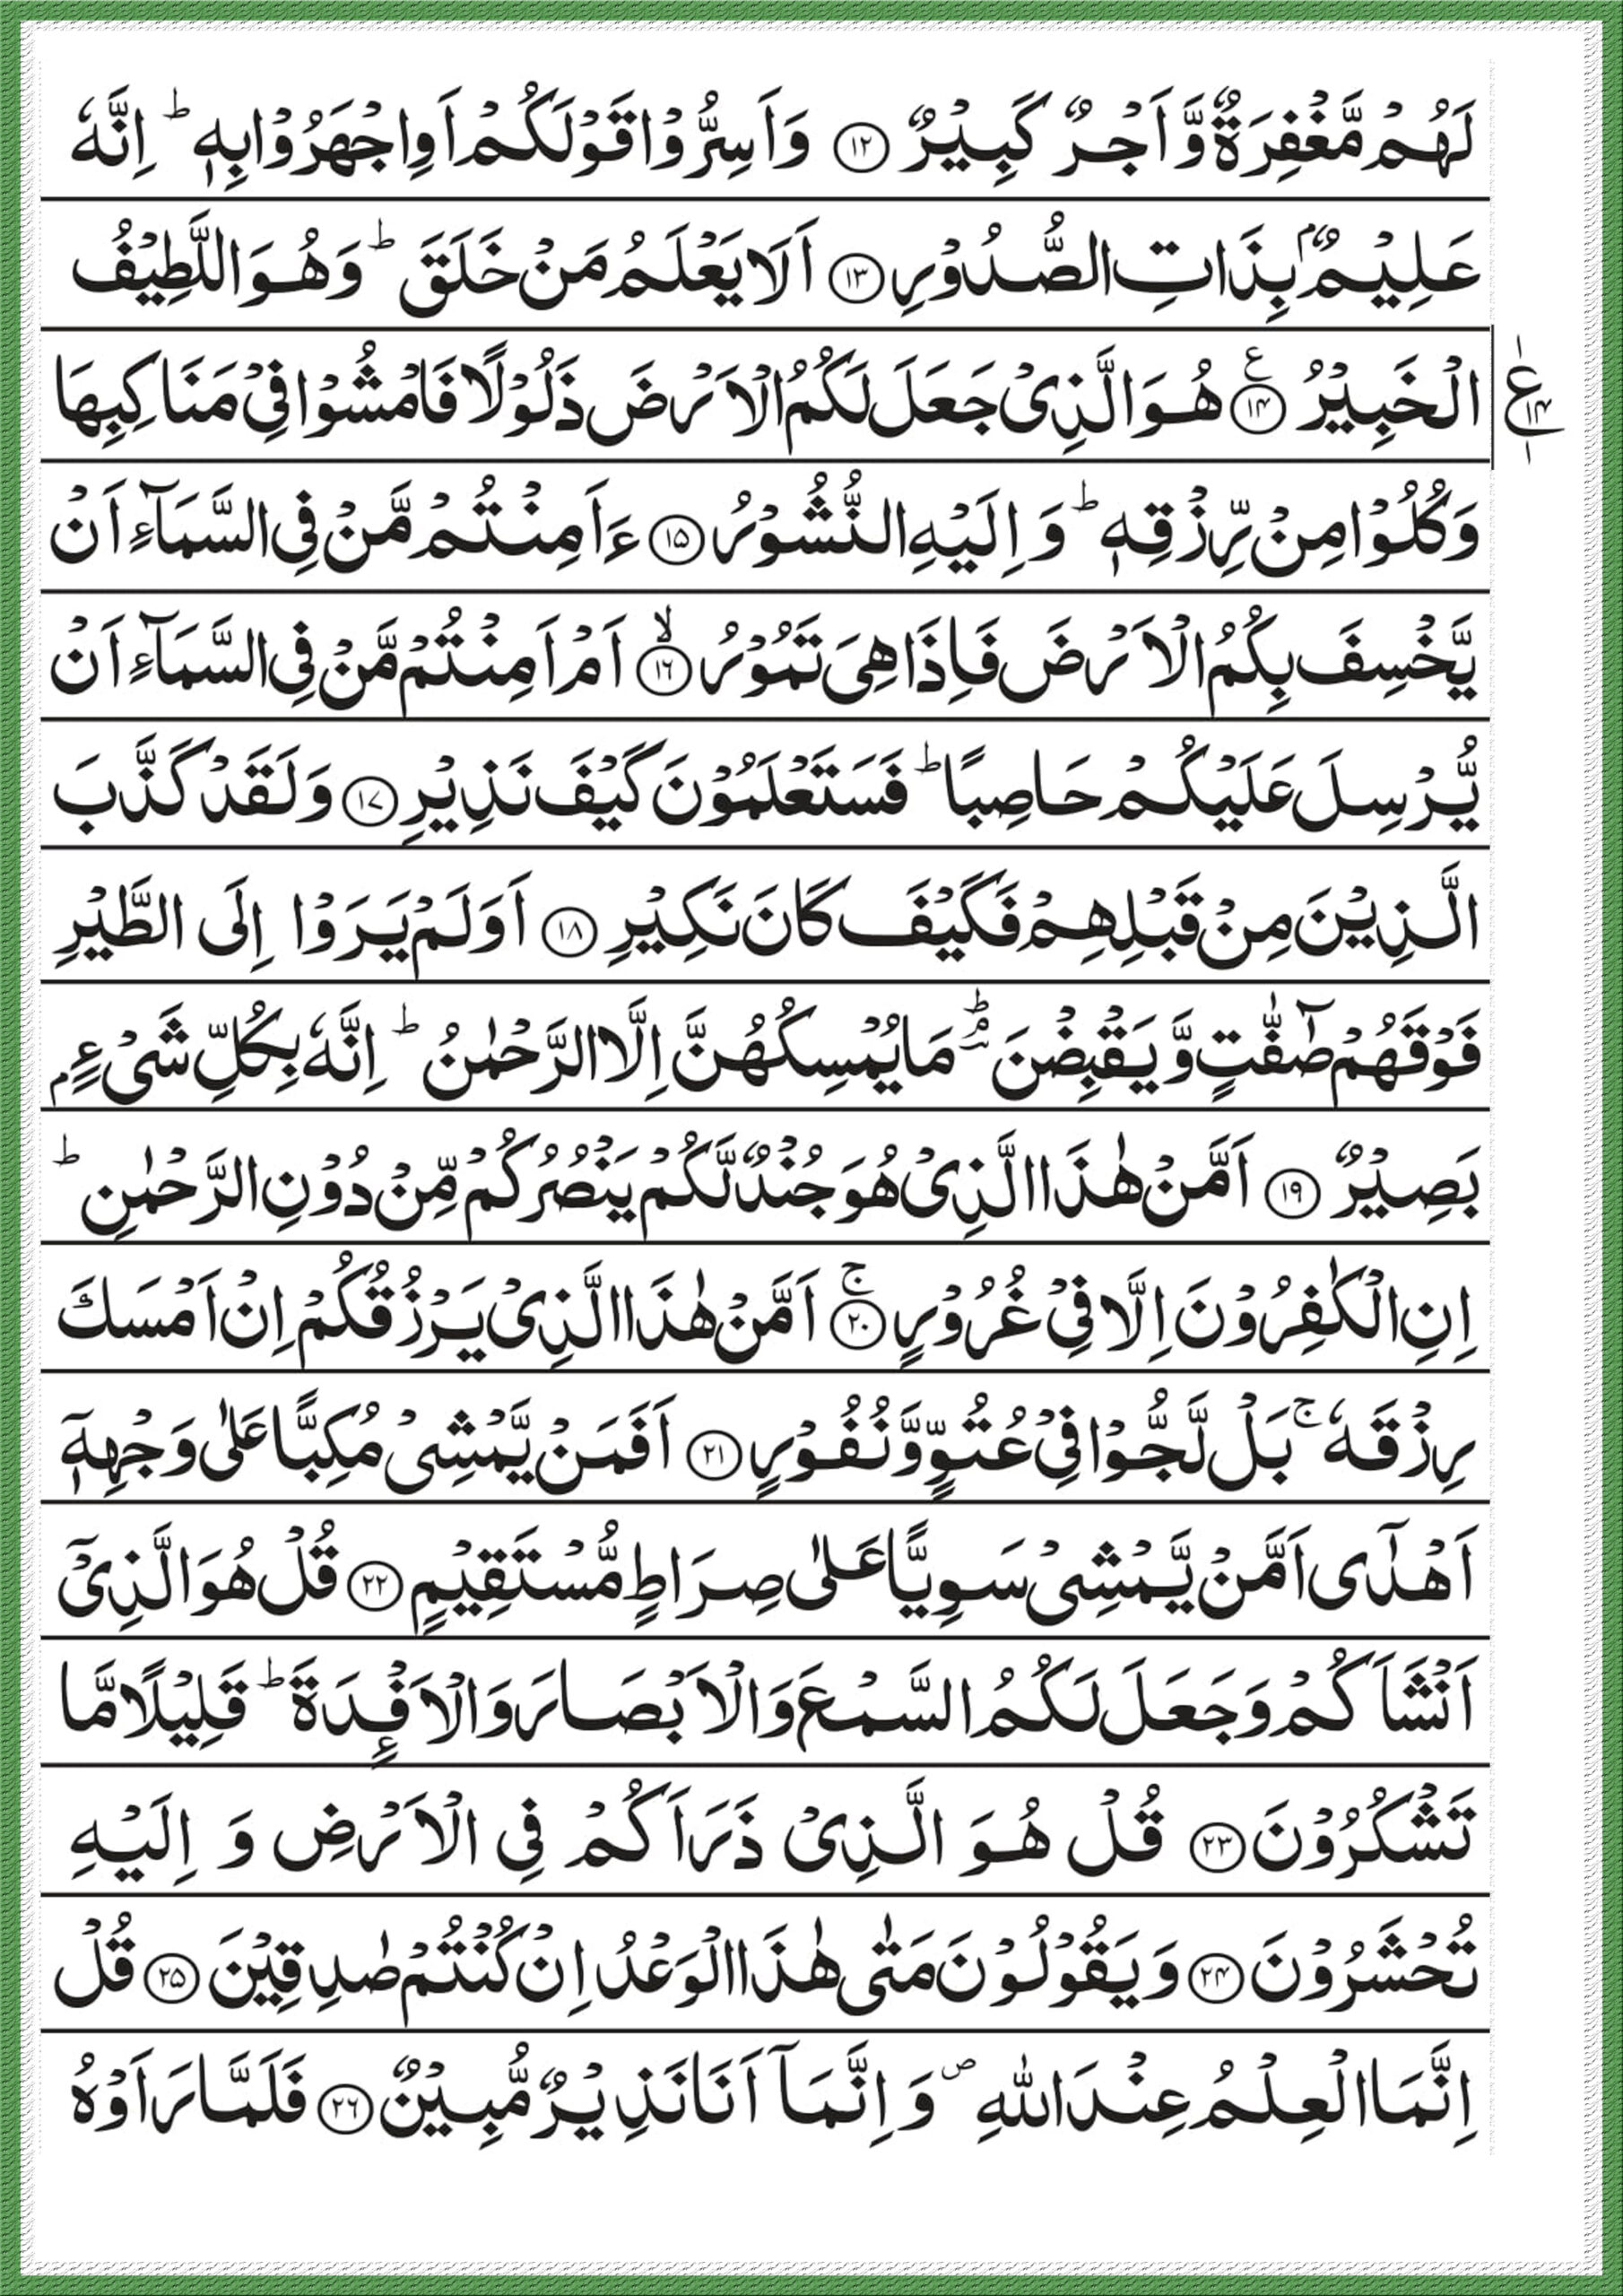 لَهُمْ مَّغْفِرَةٌ وَّ اَجْرٌ كَبِيْرٌ ﴿۱۲﴾ وَ اَسِرُّوْا قَوْلَكُمْ اَوِ اجْهَرُوْا بِهٖ ؕ اِنَّهٗ
عَلِيْمٌۢ بِذَاتِ الصُّدُوْرِ ﴿۱۳﴾ اَلَا يَعْلَمُ مَنْ خَلَقَ ؕ وَ هُوَ اللَّطِيْفُ
الْخَبِيْرُ ﴿۱۴﴾ ع هُوَ الَّذِىْ جَعَلَ لَكُمُ الْاَرْضَ ذَلُوْلًا فَامْشُوْا فِىْ مَنَاكِبِهَا
ع ۱ ۱۴ ۱
وَ كُلُوْا مِنْ رِّزْقِهٖ ؕ وَ اِلَيْهِ النُّشُوْرُ ﴿۱۵﴾ ءَاَمِنْتُمْ مَّنْ فِى السَّمَآءِ اَنْ
يَّخْسِفَ بِكُمُ الْاَرْضَ فَاِذَا هِىَ تَمُوْرُ ۙ﴿۱۶﴾ اَمْ اَمِنْتُمْ مَّنْ فِى السَّمَآءِ اَنْ
يُّرْسِلَ عَلَيْكُمْ حَاصِبًا ؕ فَسَتَعْلَمُوْنَ كَيْفَ نَذِيْرِ ﴿۱۷﴾ وَ لَقَدْ كَذَّبَ
الَّذِيْنَ مِنْ قَبْلِهِمْ فَكَيْفَ كَانَ نَكِيْرِ ﴿۱۸﴾ اَوَ لَمْ يَرَوْا اِلَى الطَّيْرِ
فَوْقَهُمْ صٰٓفّٰتٍ وَّ يَقْبِضْنَ ؔؕ مَا يُمْسِكُهُنَّ اِلَّا الرَّحْمٰنُ ؕ اِنَّهٗ بِكُلِّ شَىْءٍۭ
بَصِيْرٌ ﴿۱۹﴾ اَمَّنْ هٰذَا الَّذِىْ هُوَ جُنْدٌ لَّكُمْ يَنْصُرُكُمْ مِّنْ دُوْنِ الرَّحْمٰنِ ؕ
اِنِ الْكٰفِرُوْنَ اِلَّا فِىْ غُرُوْرٍ ۚ﴿۲۰﴾ اَمَّنْ هٰذَا الَّذِىْ يَرْزُقُكُمْ اِنْ اَمْسَكَ
رِزْقَهٗ ۚ بَلْ لَّجُّوْا فِىْ عُتُوٍّ وَّ نُفُوْرٍ ﴿۲۱﴾ اَفَمَنْ يَّمْشِىْ مُكِبًّا عَلٰى وَجْهِهٖٓ
اَهْدٰٓى اَمَّنْ يَّمْشِىْ سَوِيًّا عَلٰى صِرَاطٍ مُّسْتَقِيْمٍ ﴿۲۲﴾ قُلْ هُوَ الَّذِىْٓ
اَنْشَاَكُمْ وَ جَعَلَ لَكُمُ السَّمْعَ وَ الْاَبْصَارَ وَ الْاَفْـِٕدَةَ ؕ قَلِيْلًا مَّا
تَشْكُرُوْنَ ﴿۲۳﴾ قُلْ هُوَ الَّذِىْ ذَرَاَكُمْ فِى الْاَرْضِ وَ اِلَيْهِ
تُحْشَرُوْنَ ﴿۲۴﴾ وَ يَقُوْلُوْنَ مَتٰى هٰذَا الْوَعْدُ اِنْ كُنْتُمْ صٰدِقِيْنَ ﴿۲۵﴾ قُلْ
اِنَّمَا الْعِلْمُ عِنْدَ اللّٰهِ ۪ وَ اِنَّمَآ اَنَا نَذِيْرٌ مُّبِيْنٌ ﴿۲۶﴾ فَلَمَّا رَاَوْهُ